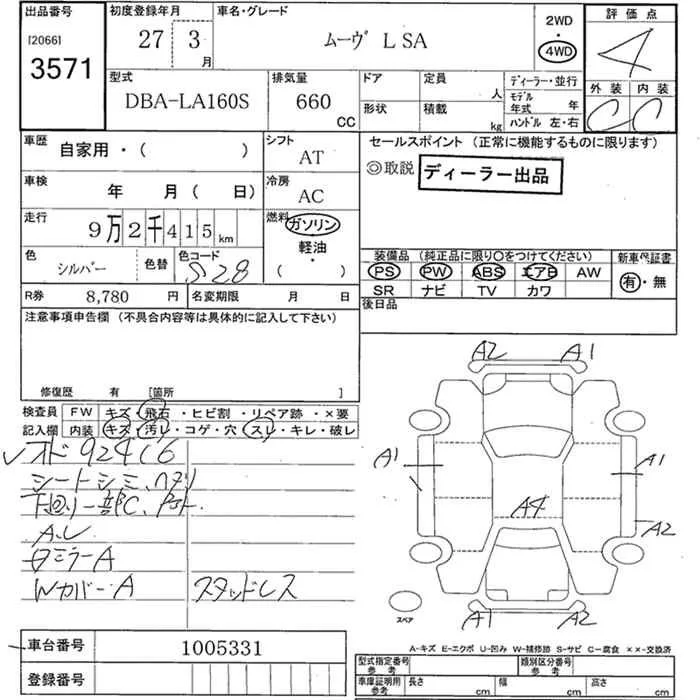 出品番号 初度登録年月 車名・グレード 2WD 評価点
[2066] 27 3 月 ムーヴ L SA ・ 4WD 4
3571
型式 排気量 ドア 定員 ディーラー・並行 外装 内装
DBA-LA160S 660 CC 形状 積載 人 kg モデル年式 年 C C
ハンドル 左・右
車歴 自家用・( ) シフト AT セールスポイント (正常に機能するものに限ります)
◎取説 ディーラー出品
車検 年 月( 日) 冷房 AC
走行 9万2千415km 燃料 ガソリン
軽油・( )
色 シルバー 色替 色コード S28
装備品 (純正品に限り○をつけてください) 新車保証書
PS PW ABS エアB AW 有・無
SR ナビ TV カワ
R券 8,780 円 名変期限 月 日 後日品
注意事項申告欄 (不具合内容等は具体的に記入して下さい)
修復歴 有 [箇所 ]
検査員 FW キズ・飛石・ヒビ割・リペア跡・×要
記入欄 内装 キズ・汚レ・コゲ・穴・スレ・キレ・破レ
レオド 92416
シートシミ、ヘタリ
下回り一部C、
A.L
ミラーA
WカバーA スタッドレス
A2 A1
A1 A1
A4 A2
A1 A2
スペア
A-キズ E-エクボ U-凹み W-補修跡 S-サビ C-腐食 ××-交換済
車台番号 1005331
登録番号
型式指定番号 参考 類別区分番号 参考
車庫証明用 参考 長さ cm 幅 cm 高さ cm